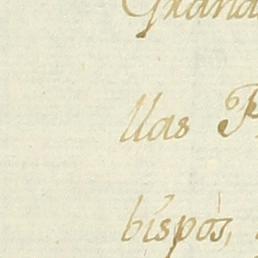 Grand
llas P
bispos,